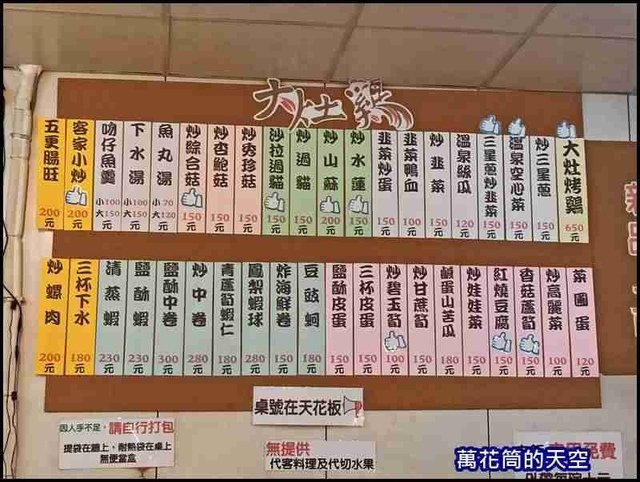 大灶雞
大灶烤雞 650元
炒三星蔥 150元
溫泉空心菜 150元
三星蔥炒韭菜 150元
溫泉絲瓜 120元
炒韭菜 150元
韭菜鴨血 100元
韭菜炒蛋 150元
炒水蓮 150元
炒山蘇 200元
炒過貓 150元
沙拉過貓 150元
炒秀珍菇 150元
炒杏鮑菇 150元
炒綜合菇 150元
魚丸湯 小70 大120元
下水湯 小100 大150元
吻仔魚羹 小100 大150元
客家小炒 200元
五更腸旺 200元
菜圃蛋 120元
炒高麗菜 100元
香菇蘆筍 150元
紅燒豆腐 150元
炒娃娃菜 150元
鹹蛋山苦瓜 180元
炒甘蔗筍 150元
炒碧玉筍 100元
三杯皮蛋 150元
鹽酥皮蛋 150元
豆豉蚵 180元
炸海鮮卷 150元
鳳梨蝦球 280元
青蘆筍蝦仁 180元
炒中卷 280元
鹽酥中卷 300元
鹽酥蝦 230元
清蒸蝦 230元
三杯下水 180元
炒螺肉 200元
桌號在天花板
因人手不足，請自行打包
提袋在牆上、耐熱袋在桌上
無便當盒
無提供
代客料理及代切水果
萬花筒的天空